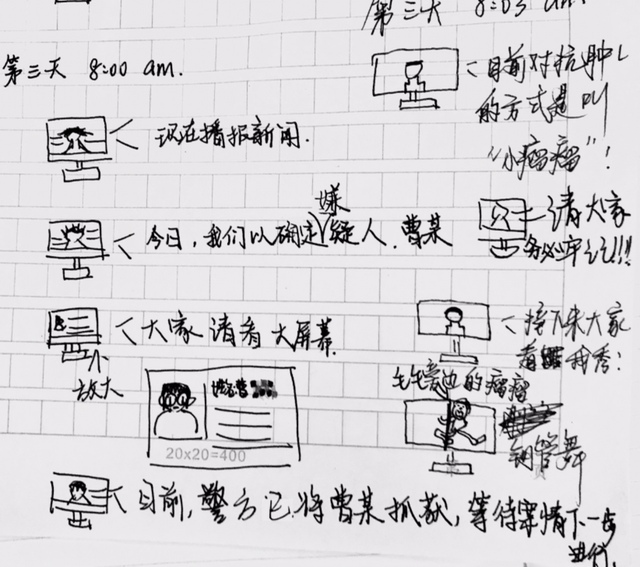 第三天 8:00 am.
现在播报新闻.
今日,我们以确定嫌疑人.曹某
大家请看大屏幕.
放大
20x20=400
目前,警方已将曹某抓获,等待案情下一步
进行.
第三天 8:05 am
目前对抗肿
的方式是叫
“小瘤瘤”!
请大家
务必牢记!!!
接下来大家
看我秀:
的瘤瘤
钢管舞